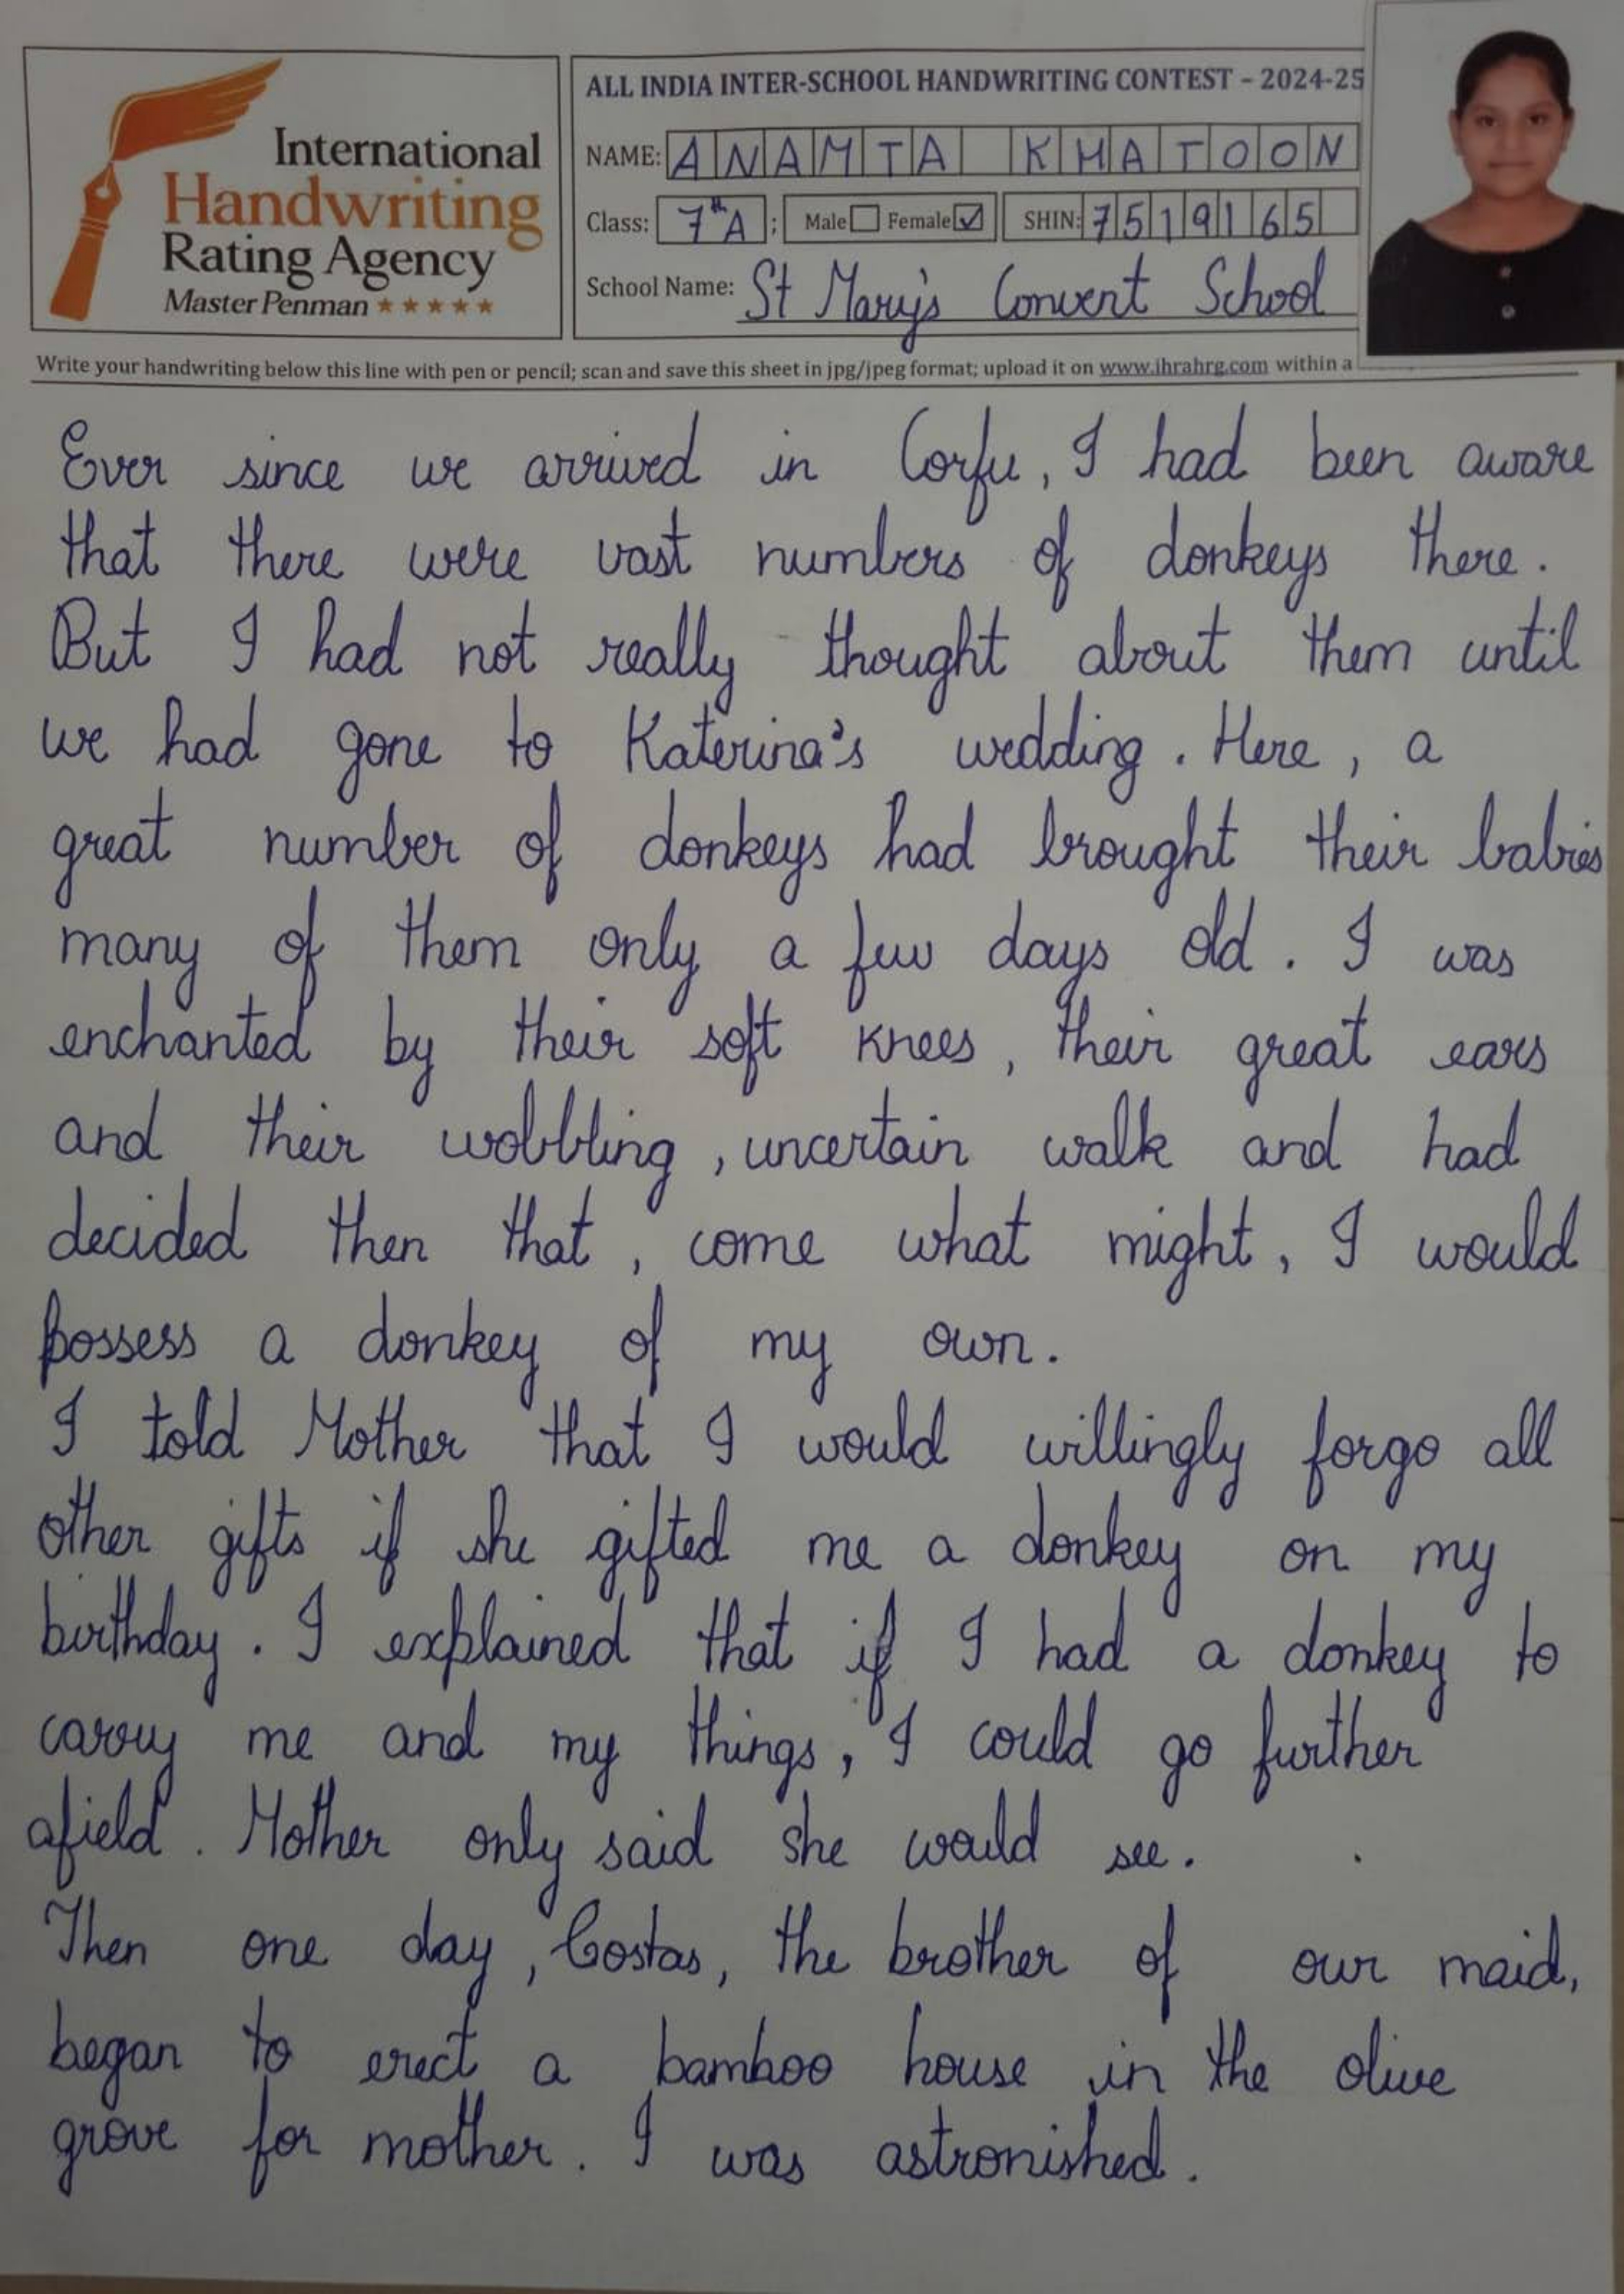 International
Handwriting
Rating Agency
Master Penman ★★★★★
ALL INDIA INTER-SCHOOL HANDWRITING CONTEST – 2024-25
NAME: ANAMTA KHATOON
Class: 7th A ; Male Female ✓ SHIN: 7519165
School Name: St Mary's Convent School
Write your handwriting below this line with pen or pencil; scan and save this sheet in jpg/jpeg format; upload it on www.ihrahrg.com within a
Ever since we arrived in Corfu, I had been aware
that there were vast numbers of donkeys there.
But I had not really thought about them until
we had gone to Katerina's wedding. Here, a
great number of donkeys had brought their babies
many of them only a few days old. I was
enchanted by their soft knees, their great ears
and their wobbling, uncertain walk and had
decided then that, come what might, I would
possess a donkey of my own.
I told Mother that I would willingly forgo all
other gifts if she gifted me a donkey on my
birthday. I explained that if I had a donkey to
carry me and my things, I could go further
afield. Mother only said she would see.
Then one day, Costas, the brother of our maid,
began to erect a bamboo house in the olive
grove for mother. I was astronished.